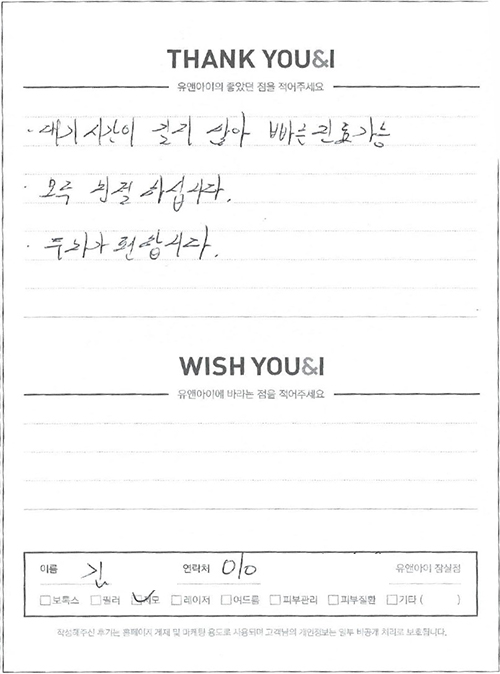 THANK YOU&I
유앤아이의 좋았던 점을 적어주세요
· 대기 시간이 길지 않아 빠른 진료가능
· 모두 친절 하십니다.
· 편합니다.
WISH YOU&I
유앤아이에 바라는 점을 적어주세요
이름 김 연락처 010 유앤아이 잠실점
보톡스 필러 제모 레이저 여드름 피부관리 피부질환 기타 ( )
작성해주신 후기는 홈페이지 게재 및 마케팅 용도로 사용되며 고객님의 개인정보는 일부 비공개 처리로 보호됩니다.